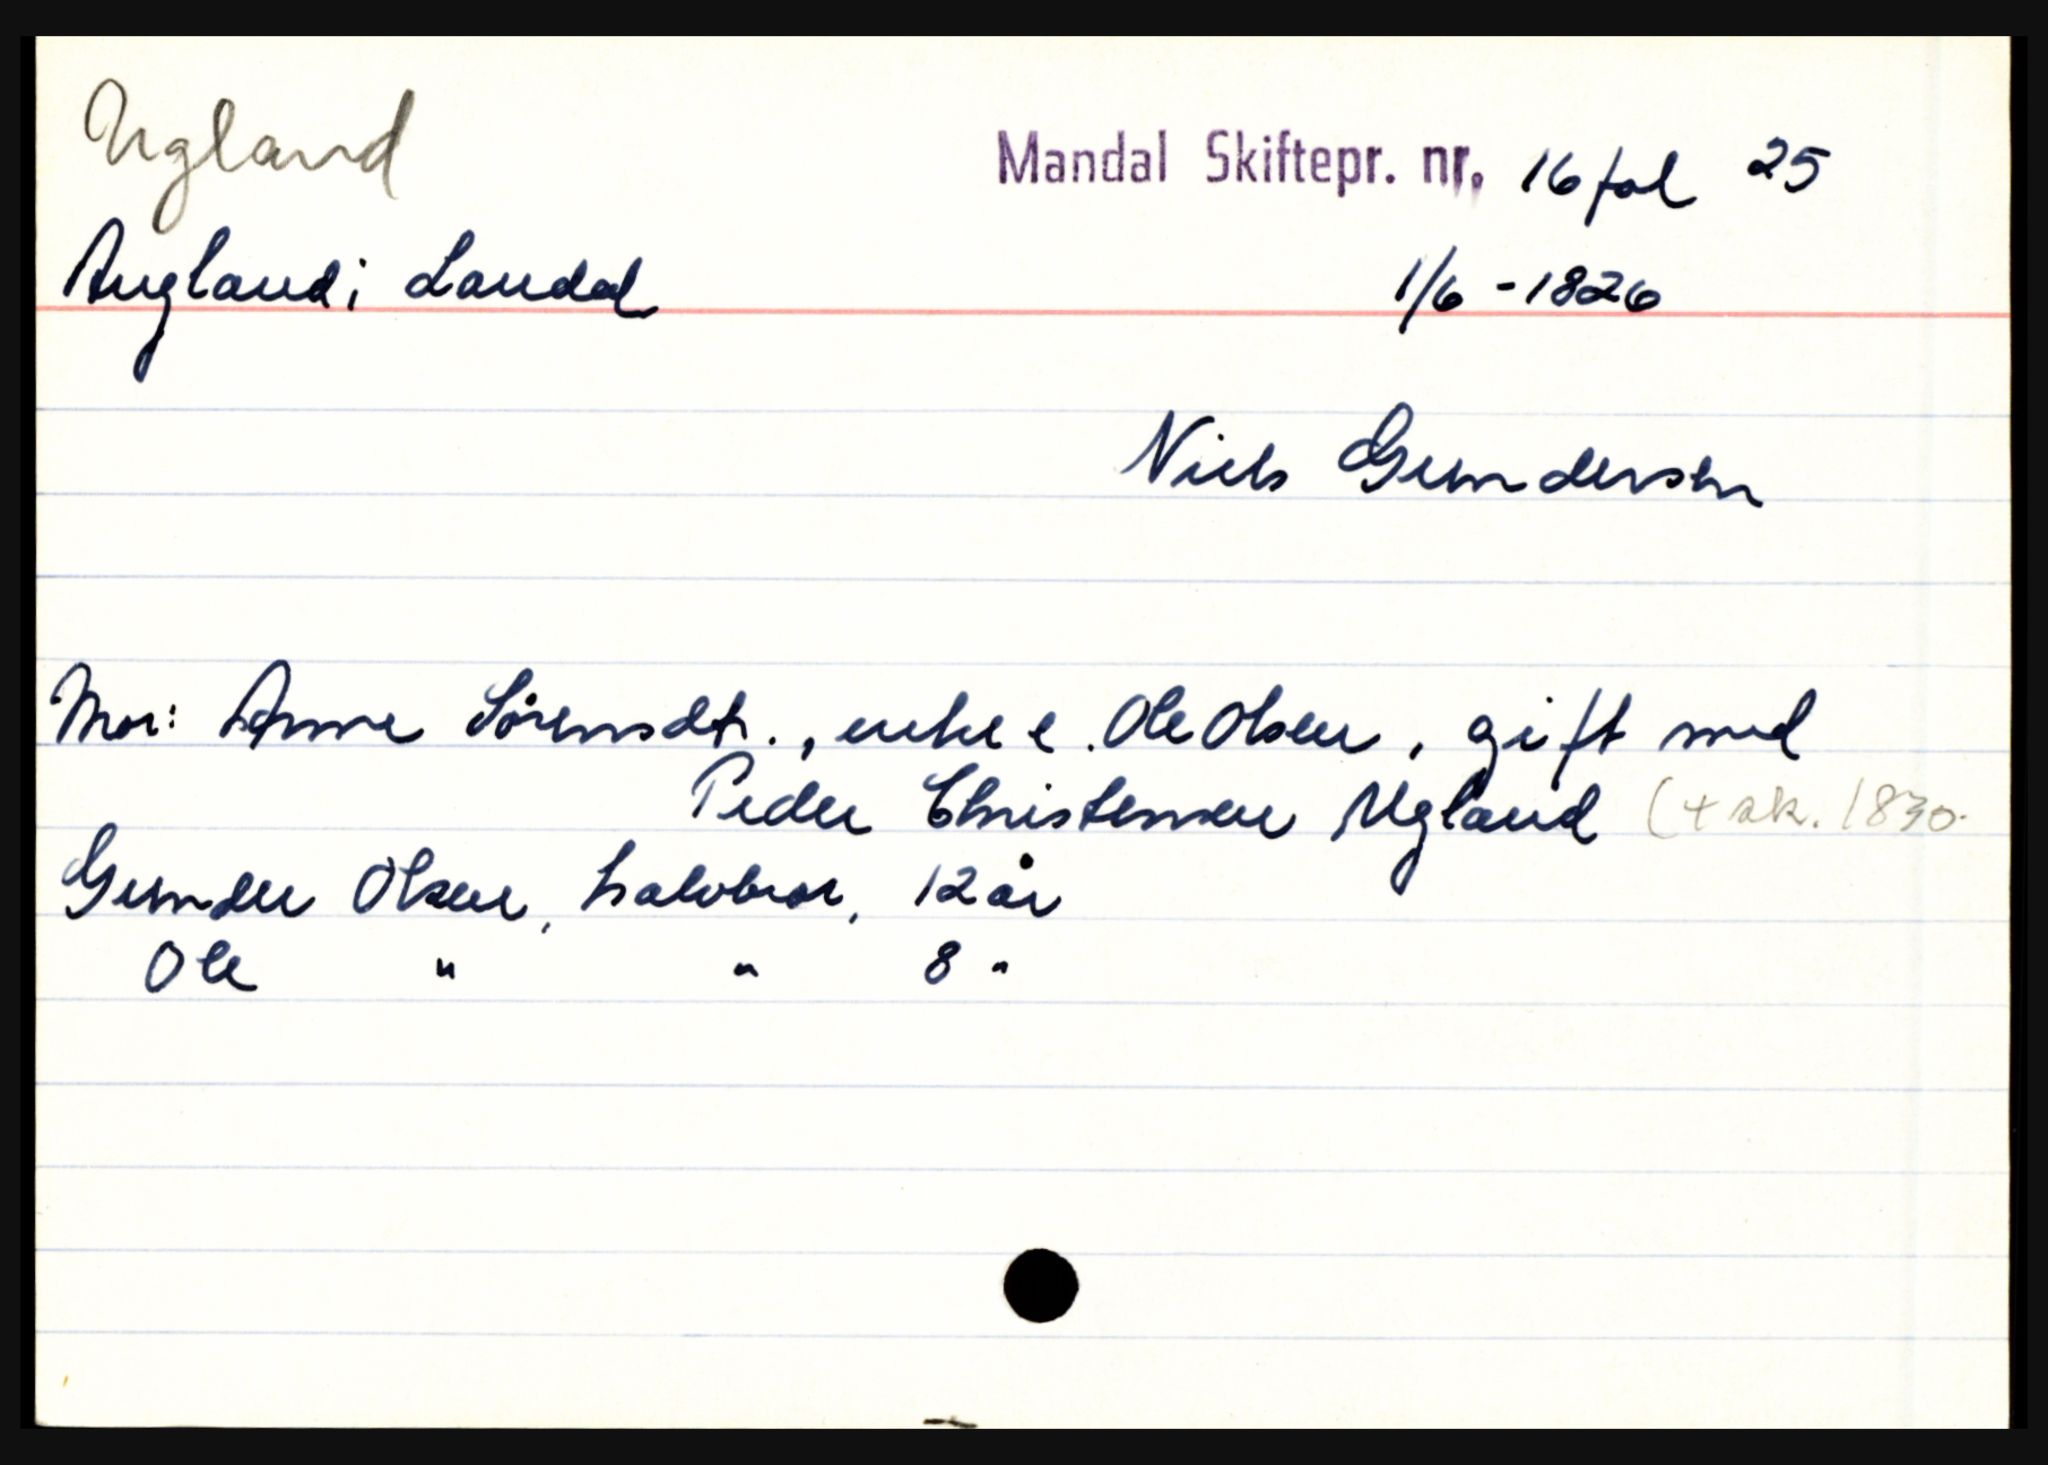 Ugland
Mandal Skiftepr. nr. 16 fol 25
Augland i Laudal
1/6 - 1826
Niels Gundersen
Mor: Anne Sörensdtr., enke e. Ole Olsen, gift med
Peder Christensen Ugland (+ sk. 1830.
Gunder Olsen, halvbror, 12 år
Ole " " 8 "